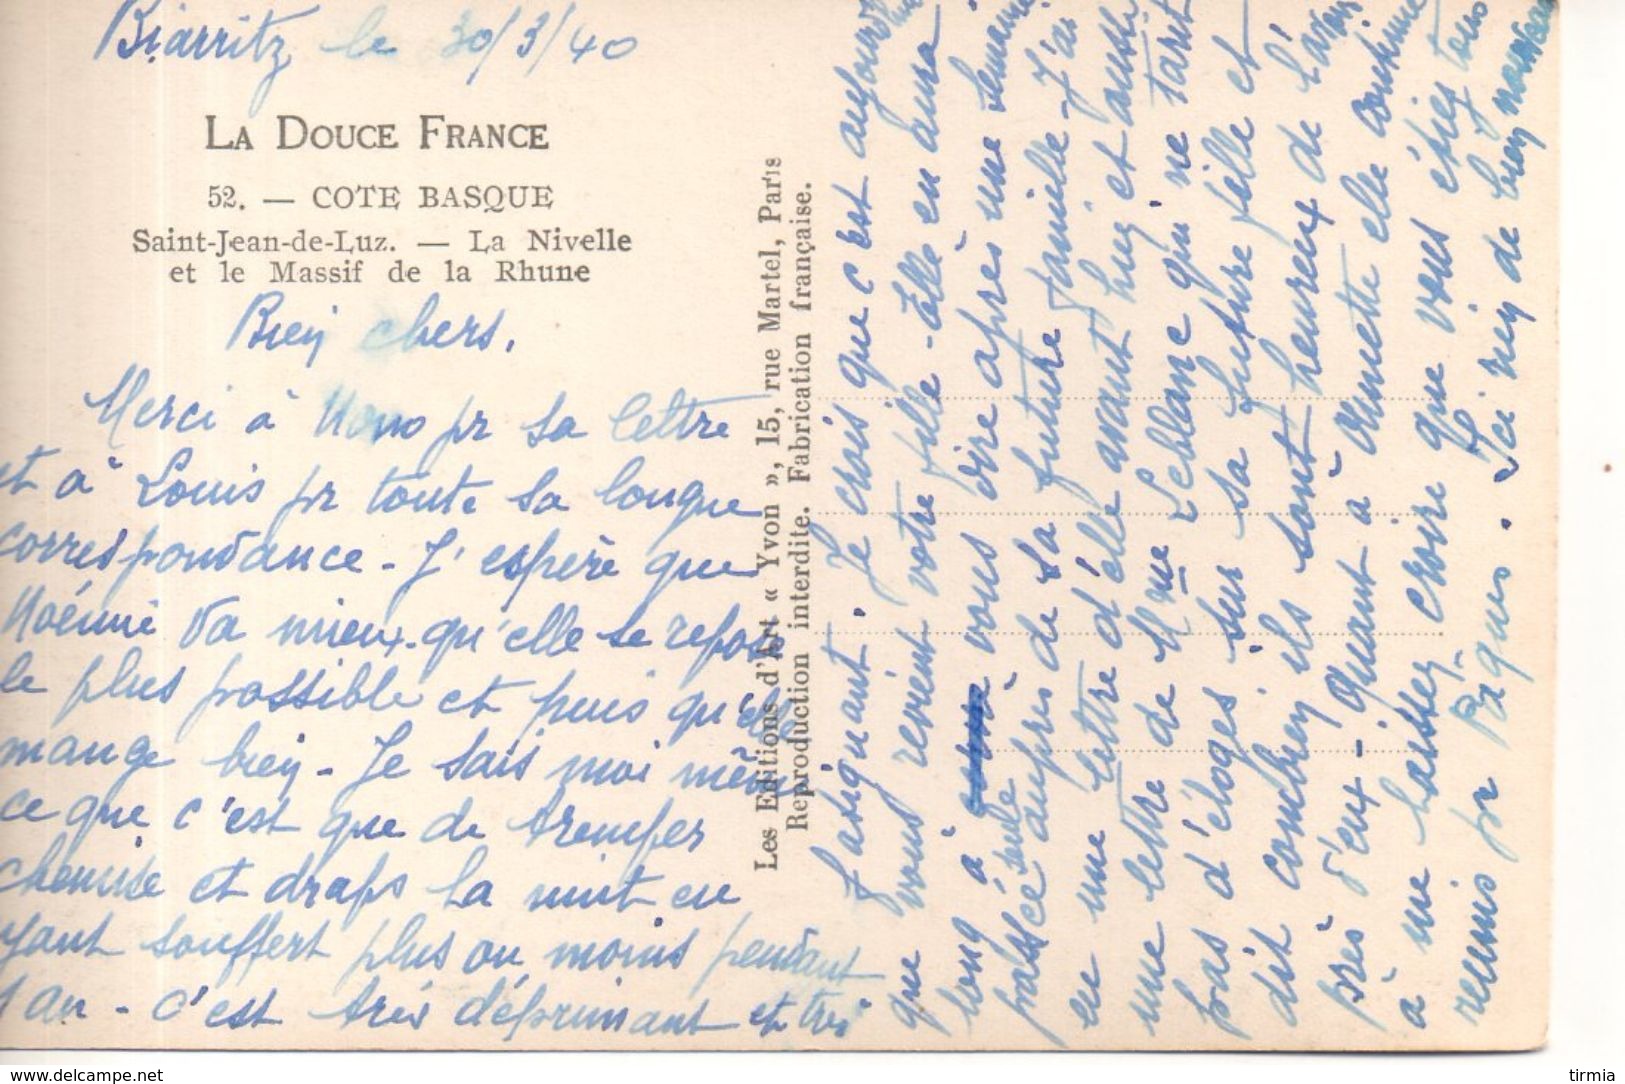 Biarritz le 30/3/40
LA DOUCE FRANCE
52. — COTE BASQUE
Saint-Jean-de-Luz. — La Nivelle
et le Massif de la Rhune
Bien chers.
Merci à Nono pr sa lettre
et à Louis pr toute sa longue
correspondance - J'espère que
Noémie va mieux. qu'elle se repose
le plus possible et puis qu'elle
mange bien - Je sais moi même
ce que c'est que de tremper
chemise et draps la nuit en
ayant souffert plus ou moins pendant
1 an - c'est très déprimant et très
Les Editions d'Art « Yvon », 15, rue Martel, Paris
Reproduction interdite. Fabrication française.
fatiguant. Je crois que c'est aujourd'hui
que vous revient votre fille - Elle en aura
long à vous dire après une semaine
passée seule auprès de sa future famille - J'ai
eu une lettre d'elle avant hier et aussi
une lettre de Mme Leblanc qui ne tarit
pas d'éloges sur sa future fille et
dit combien ils sont heureux de l'avoir
près d'eux - Quant à elle continue
à me laisser croire que vous étiez tous
réunis pr Pâques. Ici rien de bien nouveau
delcampe.net
tirmia